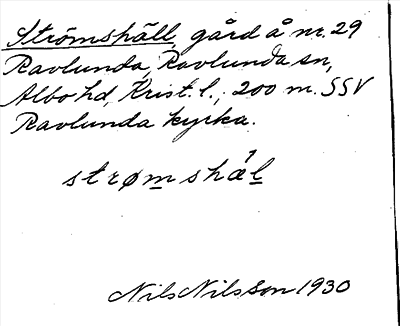 Strömshäll, gård å nr. 29
Ravlunda, Ravlunda sn,
Albo hd, Krist. l.; 200 m. SSV
Ravlunda kyrka.
strømshæ´l
Nils Nilsson 1930